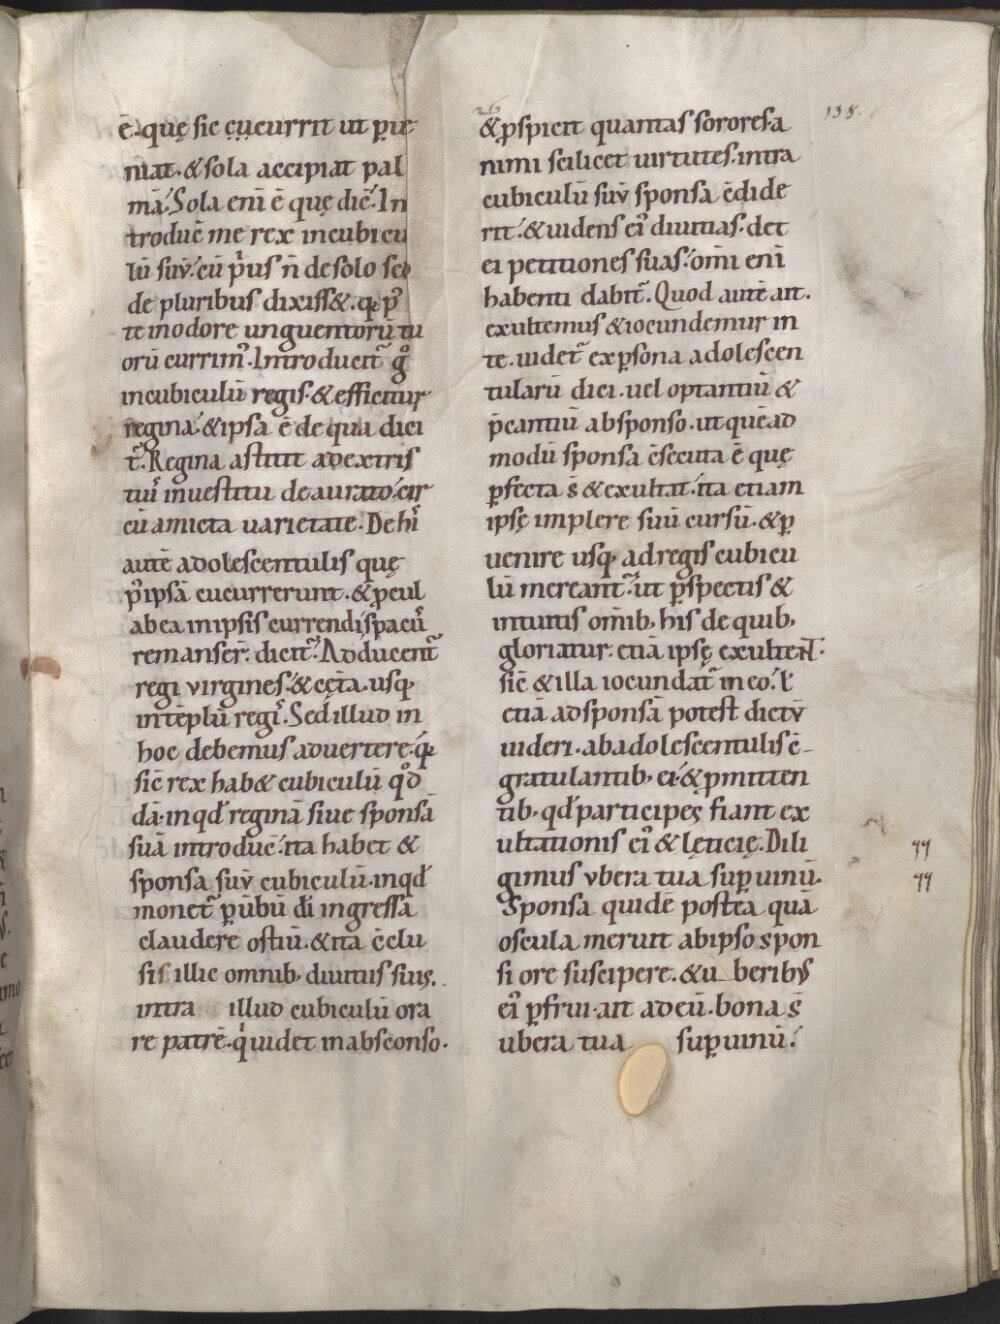 ē quę sic cucurrit ut ꝑue
niat. & sola accipiat pal
mā. Sola eni ē quę dic̄. In
troduc̄ me rex in cubicu
lū suū. cū pͥus n̄ de solo sed
de pluribus dixiss&. qꝫ pꝰ
te in odore unguentorū tu
orū currimꝰ. Introducit᷑ gͦ
in cubiculū regis. & efficitur
regina. & ipsa ē de qua dici
t᷑. Regina astitit a dextris
tuiˢ in uestitu deaurato. cir
cū amicta uarietate. De hiˢ
autē adolescentulis quę
pꝰ ipsā cucurrerunt. & ꝓcul
ab ea in ipsis currendi spaciiˢ
remanser̄. dicit᷑. Adducent᷑
regi virgines. & cęta. usqꝫ
in tēplū regiˢ. Sed illud in
hoc debemus aduertere. qꝫ
sic̄ rex hab& cubiculū qͦd
dā. in qđ reginā siue sponsā
suā introduc̄. ita habet &
sponsa suū cubiculū. in qđ
monet᷑ ꝑ ūbū di̅ ingressa
claudere ostiū. & ita c̄clu
sis illic omnibꝫ diuitiis suis.
intra illud cubiculū ora
re patrē. qͥ uidet in absconso.
& ꝑspicit quantas sorores a
nimi scilicet uirtutes. intra
cubiculū suū sponsa c̄dide
rit. & uidens eiˢ diuitias. det
ei petitiones suas. om̄i eni
habenti dabit᷑. Quod autē ait.
exultemus & iocundemur in
te. uidet᷑ ex ꝑsona adolescen
tularū dici. uel optantiū &
p̄cantiū ab sponso. ut quēad
modū sponsa c̄secuta ē quę
ꝑfecta s̄ & exultat. ita etiam
ipsę implere suū cursū. & ꝑ
uenire usqꝫ ad regis cubicu
lū mereant᷑. ut ꝑspectis &
intuitis om̄ibꝫ his de quibꝫ
gloriatur. etiā ipsę exultent.
sic̄ & illa iocundat᷑ in eo. ł
etiā ad sponsā potest dictū
uideri. ab adolescentulis c̄
gratulantibꝫ ei. & ꝓmitten
tibꝫ qđ participes fiant ex
ultationis eiˢ & lęticię. Dili
gimus vbera tua suꝑ uinū.
Sponsa quidē postea quā
oscula meruit ab ipso spon
si ore suscipere. & u beribus
eiˢ ꝑfrui. ait ad eū. bona s̄
ubera tua suꝑ uinū.
138.